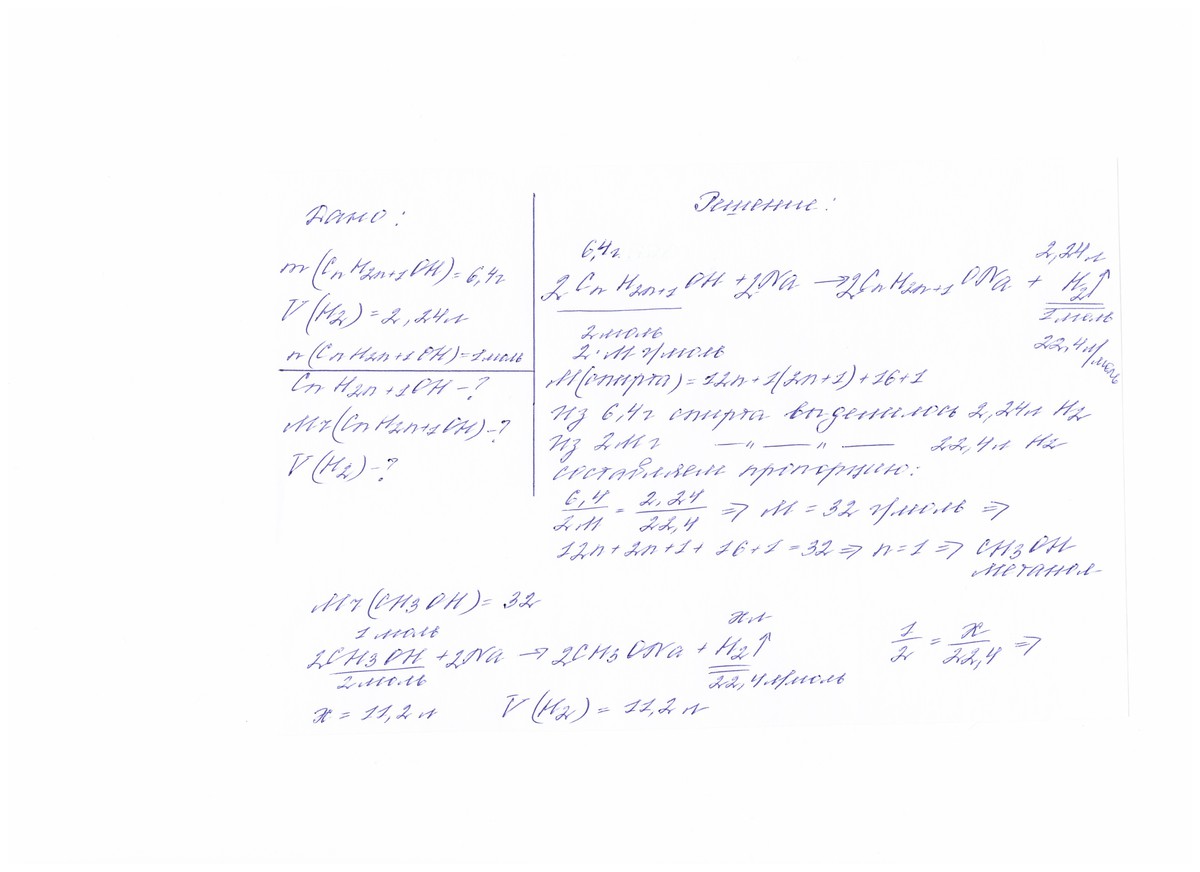 Дано:
m(CnH2n+1OH)=6,4г
V(H2)=2,24л
n(CnH2n+1OH)=1моль
CnH2n+1OH-?
Mr(CnH2n+1OH)-?
V(H2)-?
Решение:
6,4г 2,24л
2CnH2n+1OH+2Na→2CnH2n+1ONa + H2↑
2моль 1моль
2·M г/моль 22,4л/моль
M(спирта)=12n+1(2n+1)+16+1
из 6,4г спирта выделилось 2,24л H2
из 2Mг —"—"— 22,4л H2
составляем пропорцию:
6,4/2M = 2,24/22,4 => M=32 г/моль =>
12n+2n+1+16+1=32=> n=1=> CH3OH
метанол
Mr(CH3OH)=32
1моль xл
2CH3OH+2Na→2CH3ONa+H2↑ 1/2 = x/22,4 =>
2моль 22,4л/моль
x=11,2л V(H2)=11,2л